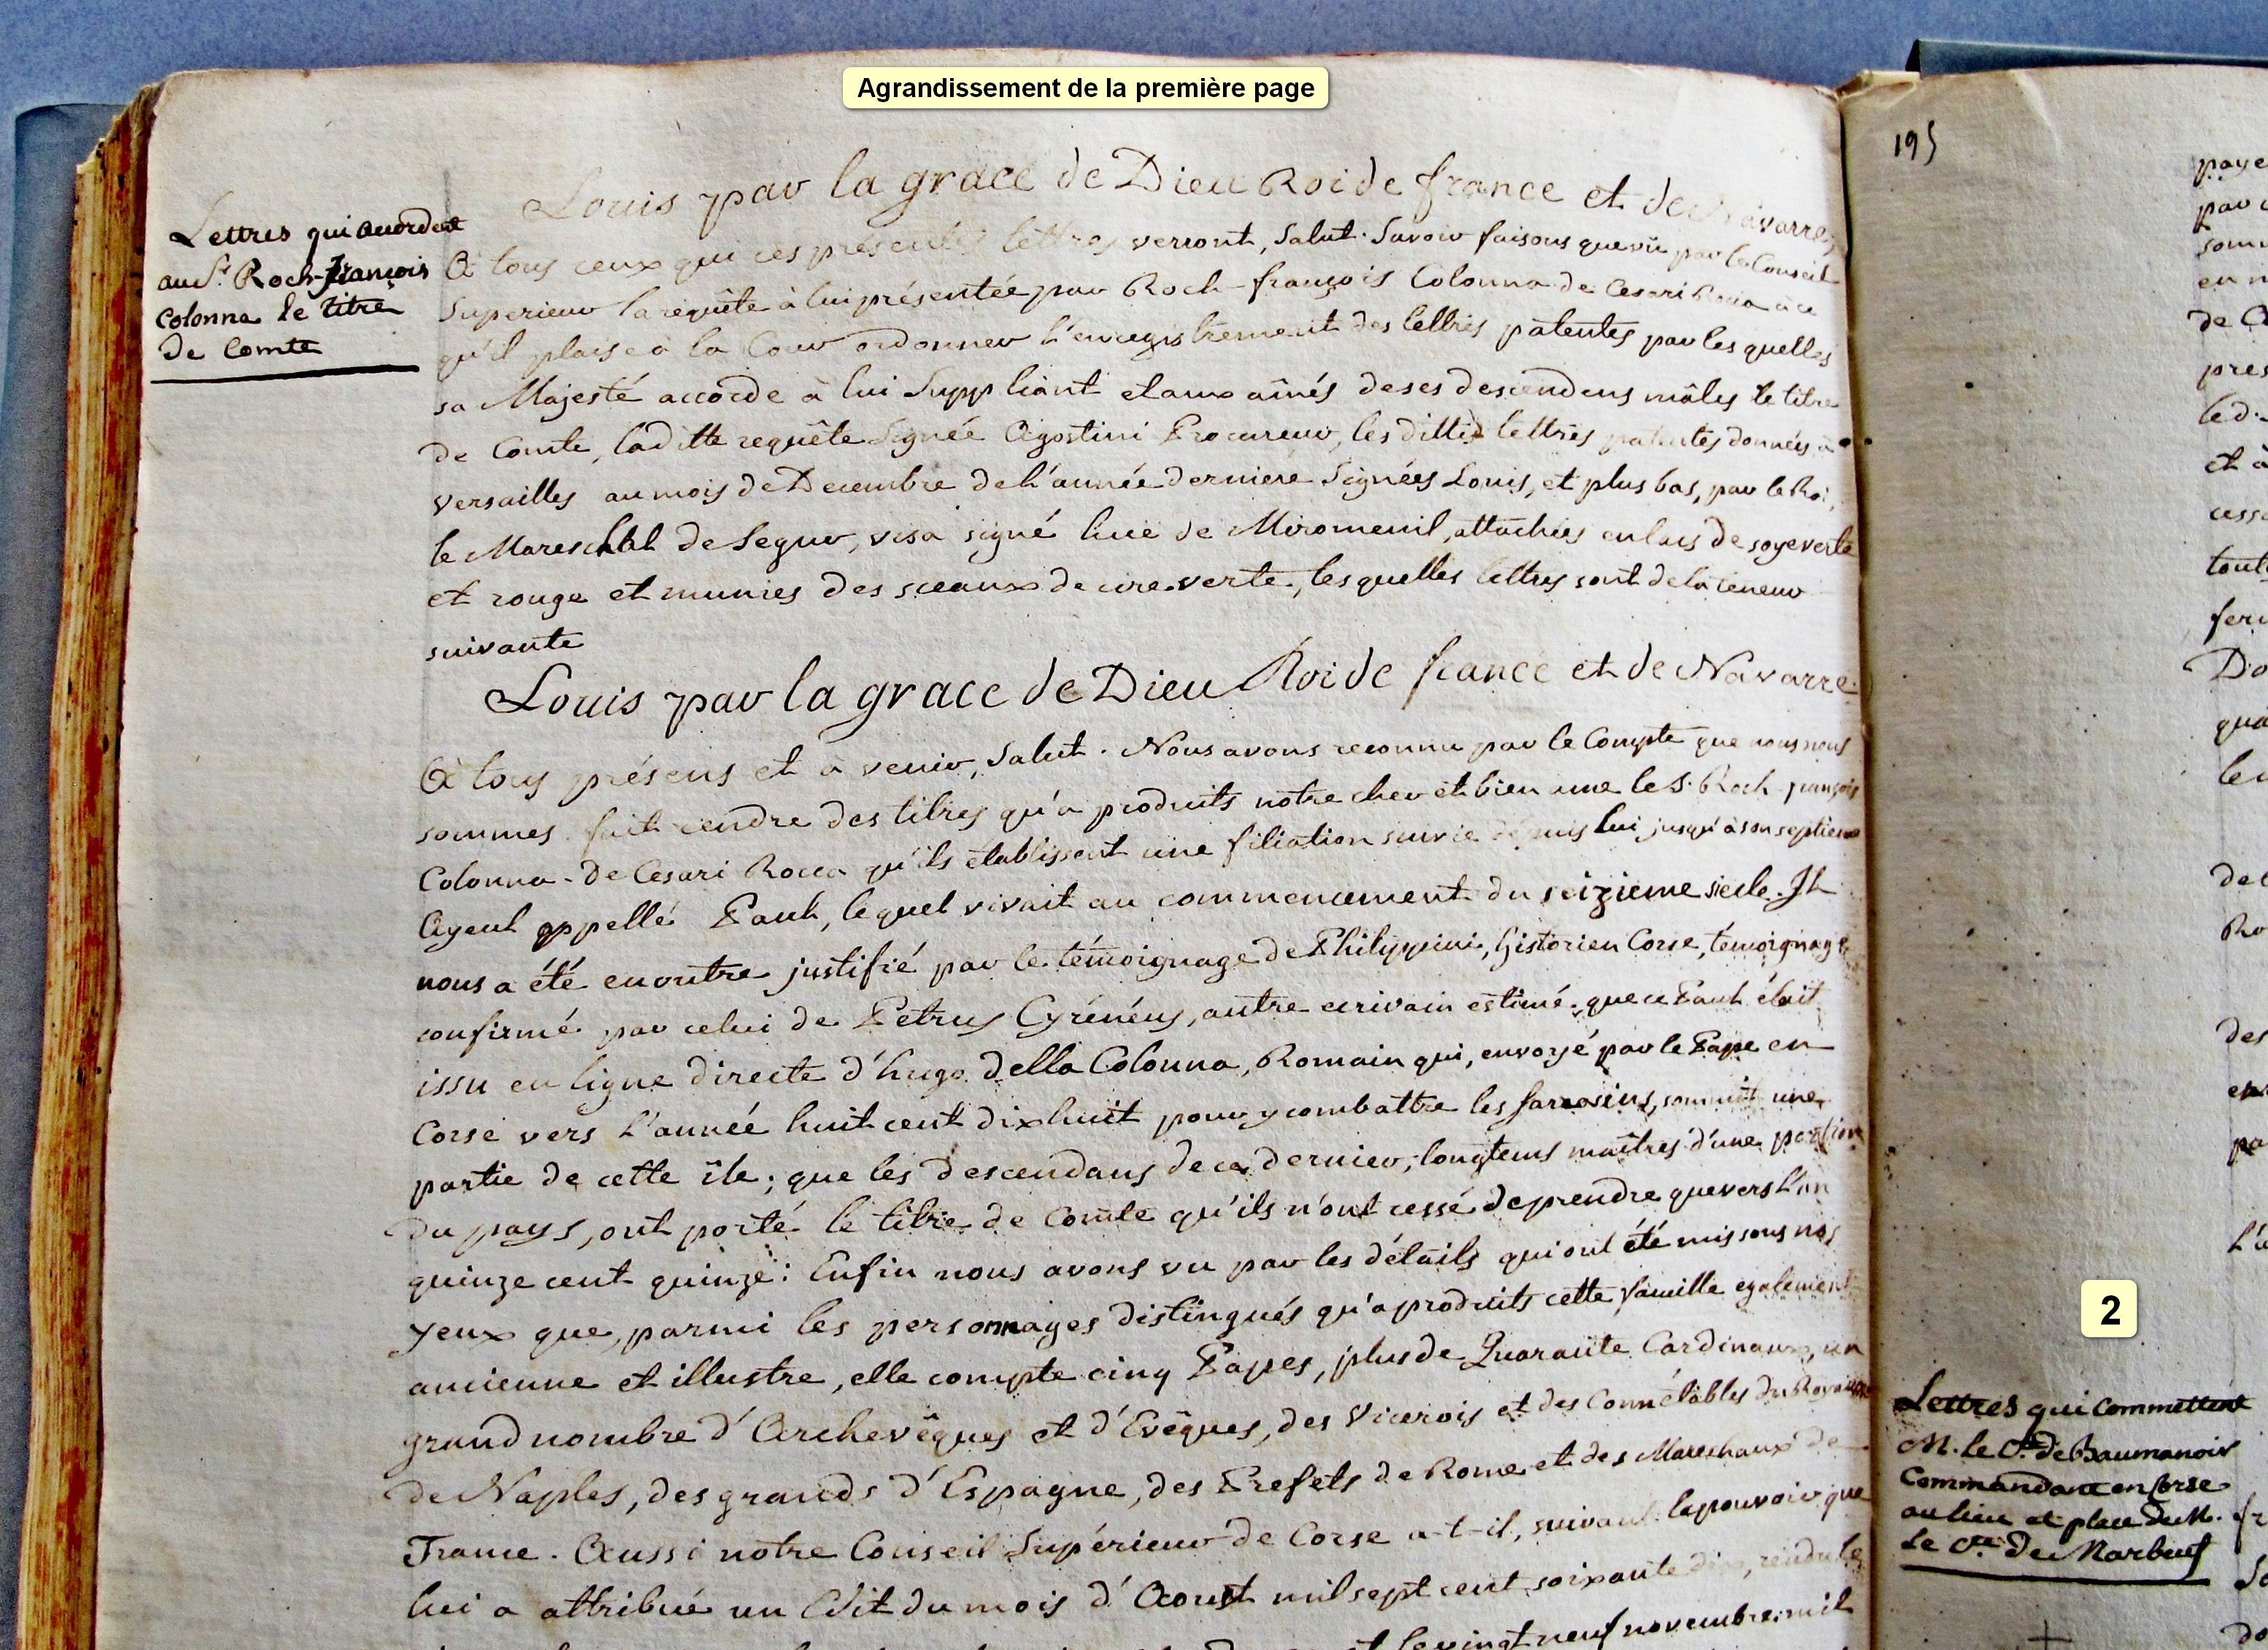 Agrandissement de la première page
Lettres qui accordent
au Sr. Roch-François
Colonna le titre
de Comte
Louis par la grace de Dieu Roi de france et de Navarre,
A tous ceux qui ces présentes lettres verront, Salut. Savoir faisons que vû par le Conseil
Superieur la requête à lui présentée par Roch-françois Colonna de Cesari Rocca à ce
qu'il plaise à la Cour ordonner l'enregistrement des lettres patentes par les quelles
sa Majesté accorde à lui Suppliant et aux aînés de ses descendens mâles le titre
de Comte, laditte requête Signée Agostini Procureur, les dittes lettres patentes données à
Versailles au mois de Decembre de l'année derniere Signées Louis, et plus bas, par le Roi,
le Mareschal de Segur, visa signé hue de Miromenil, attachées en lacs de soye verte
et rouge et munies des sceaux de cire verte, les quelles lettres sont de la teneur
suivante
Louis par la grace de Dieu Roi de france et de Navarre
A tous présens et à venir, Salut. Nous avons reconnu par le Compte que nous nous
sommes fait rendre des titres qu'a produits notre cher et bien amé le S. Roch françois
Colonna-de Cesari Rocca qu'ils établissent une filiation suivie depuis lui jusqu'à son septieme
Ayeul appellé Paul, lequel vivait au commencement du seizieme siecle. Il
nous a été en outre justifié par le témoignage de Philippini, historien Corse, témoignage
confirmé par celui de Petrus Cyrénéus, autre ecrivain estimé, que ce Paul était
issu en ligne directe d'hugo della Colonna, Romain qui, envoyé par le Pape en
Corse vers l'année huit cent dix huit pour y combattre les sarrasins, soumit une
partie de cette île; que les descendans de ce dernier, longtems maîtres d'une portion
du pays, ont porté le titre de Comte qu'ils n'ont cessé de prendre que vers l'an
quinze cent quinze: Enfin nous avons vu par les détails qui ont été mis sous nos
yeux que, parmi les personnages distingués qu'a produits cette famille egalement
ancienne et illustre, elle compte cinq Papes, plus de Quarante Cardinaux, un
grand nombre d'Archevêques et d'Evêques, des Vicerois et des Connétables du Royaume
de Naples, des grands d'Espagne, des Prefets de Rome et des Mareschaux de
France. Aussi notre Conseil Supérieur de Corse a-t-il, suivant le pouvoir que
lui a attribué un Edit du mois d'Aoust mil sept cent soixante dix, rendu le
le vingt neuf novembre mil
195
paye
par
somm
en
de C
pres
led.
et à
cesse
toute
feri
Do
qua
le
de
Ro
des
en
pa
l'a
2
Lettres qui Commettent
M. le Cte. de Baumanoir
Commandant en Corse
au lieu et place de M.
le Cte. de Marbeuf
fr